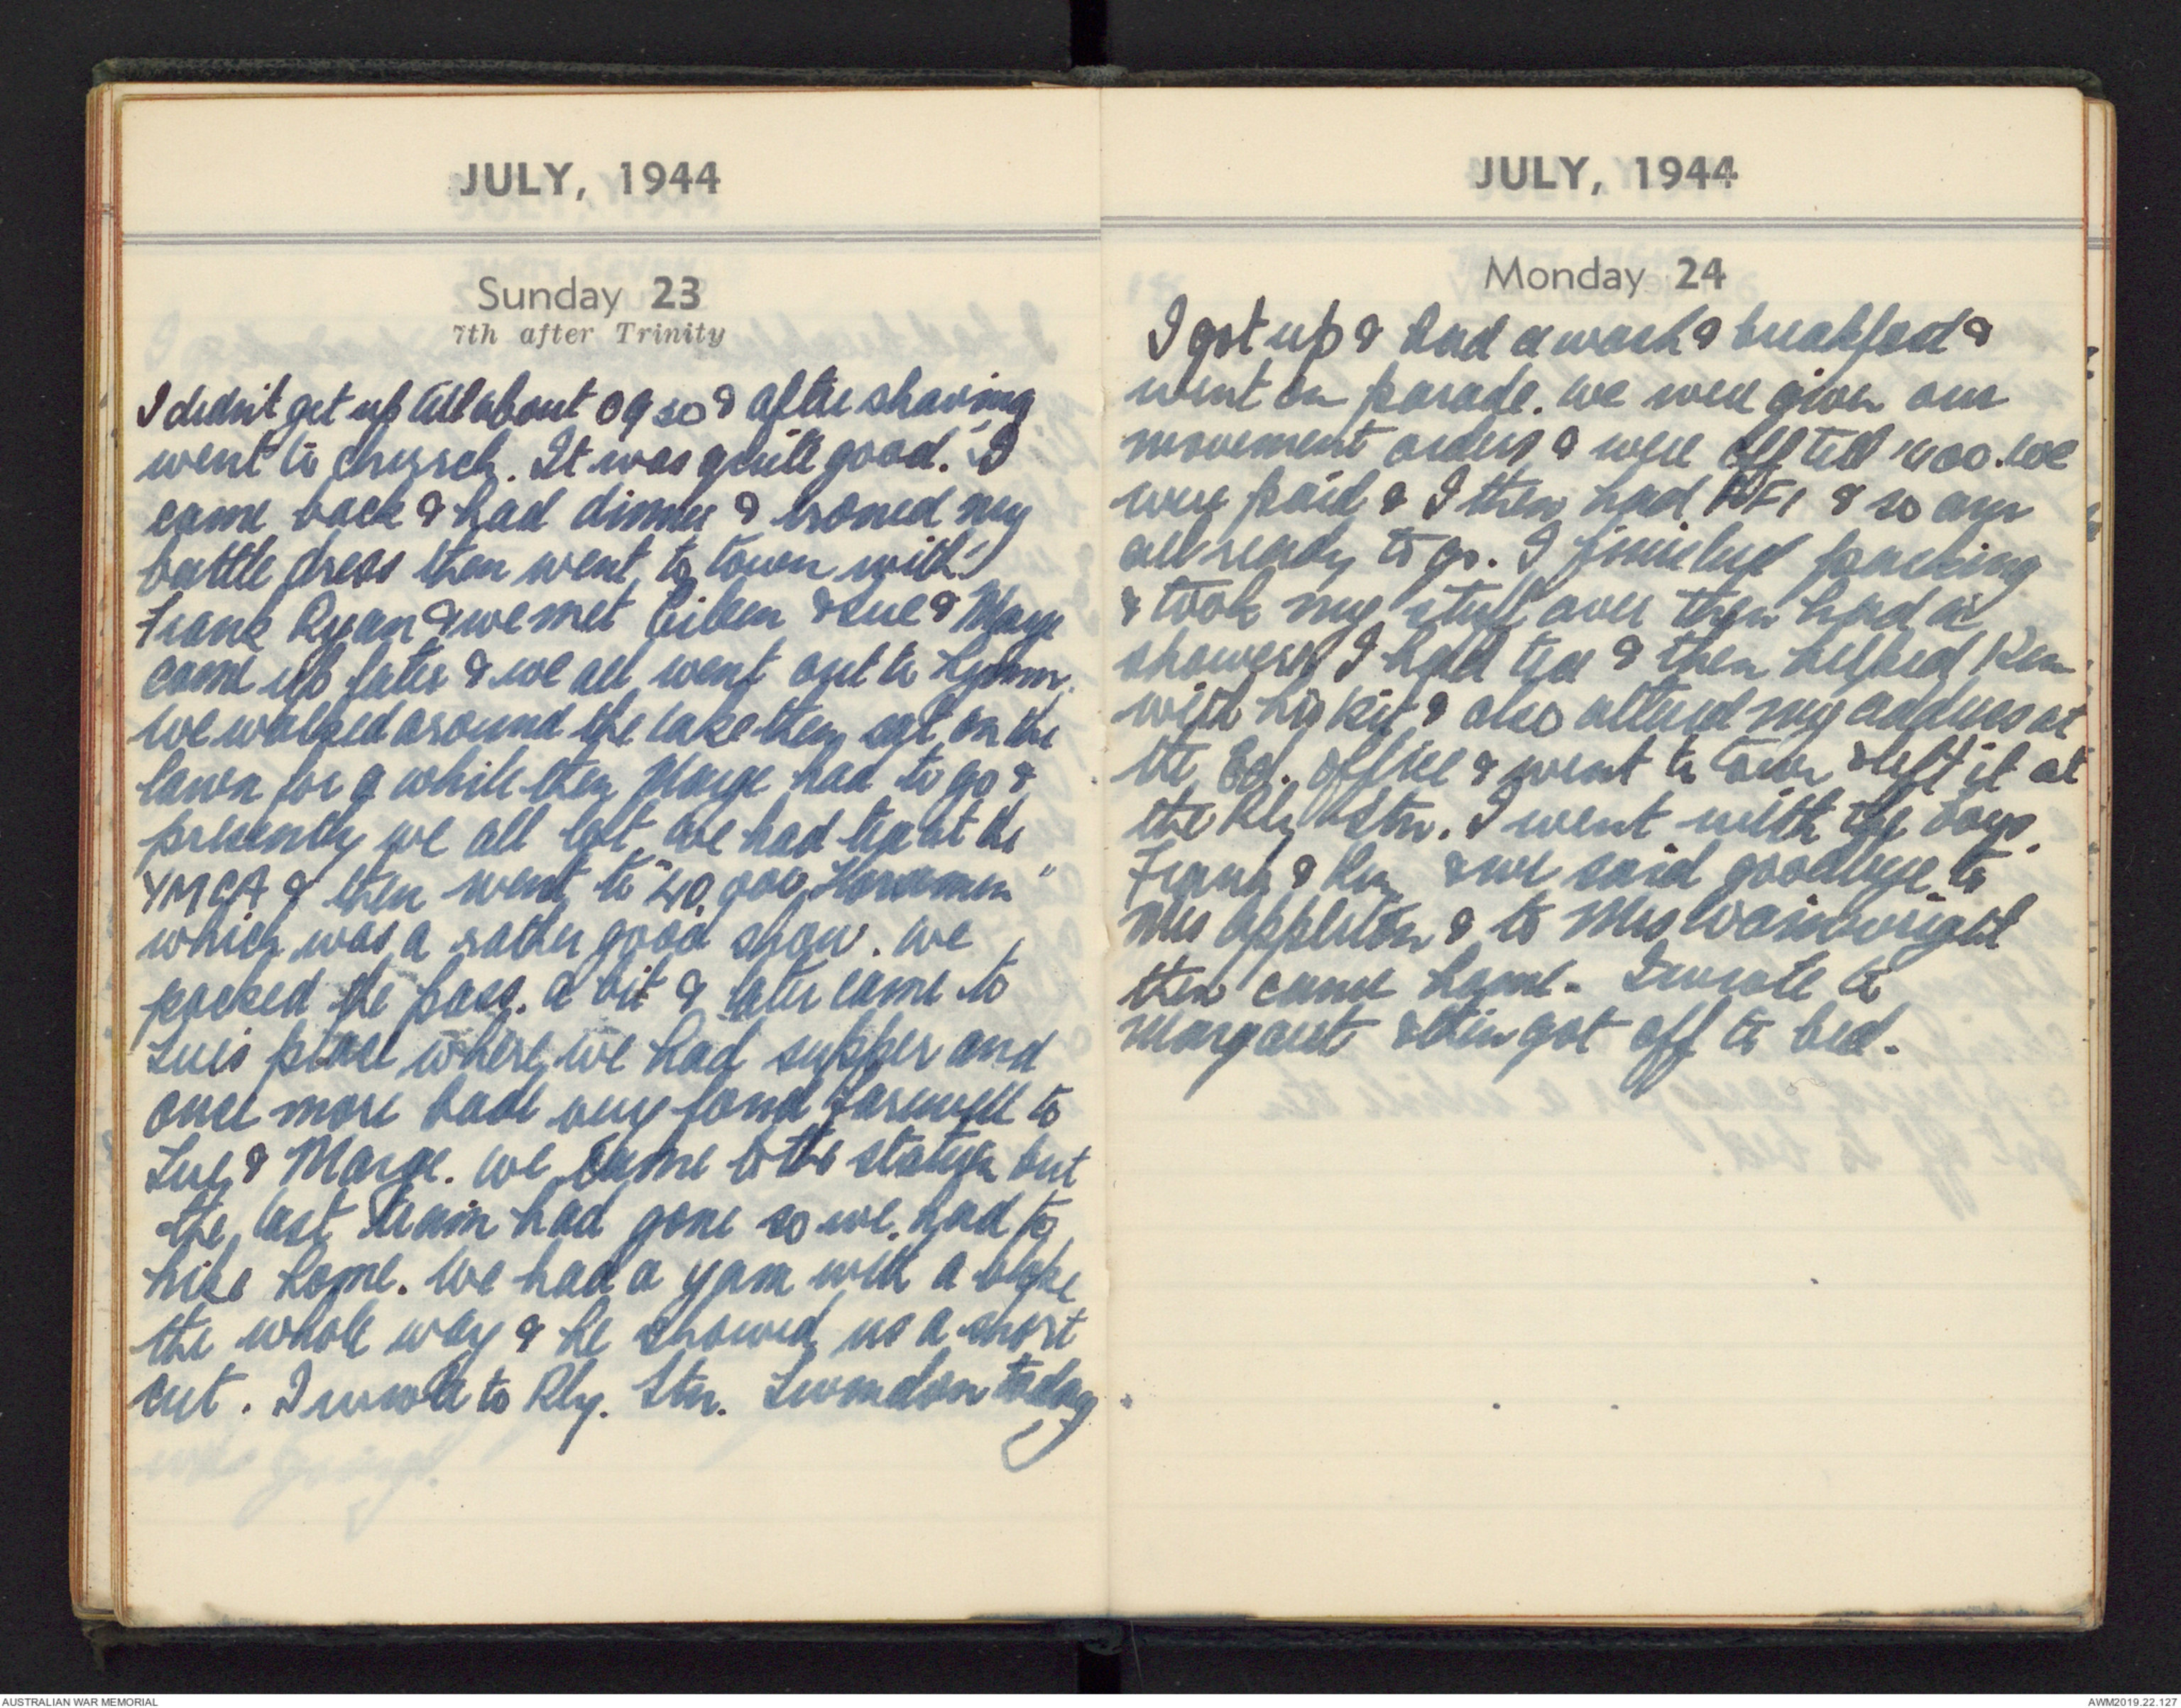 JULY, 1944
Sunday 23
7th after Trinity
I didn't get up till about 0930 & after shaving
went to church. It was quite good. I
came back & had dinner & ironed my
battle dress then went to town with
Frank Ryan & we met Eileen & Sue & Marge
came up later & we all went out to Lymm.
We walked around the lake then sat on the
lawn for a while then Marge had to go &
presently we all left. We had tea at the
YMCA & then went to "40,000 Horsemen"
which was a rather good show. We
the pass. a bit & later came to
Sue's place where we had supper and
once more bade very fond farewell to
Sue & Marge. We came to the station but
the last train had gone so we had to
hike home. We had a yarn with a bloke
the whole way & he showed us a short
cut. I wrote to Rly. Stn. Swindon today
JULY, 1944
Monday 24
I got up & had a wash & breakfast &
went on parade. We were given our
movement orders & were off till 1400. We
were paid & I then had & so am
all ready to go. I finished packing
& took my stuff over then had a
shower. I had tea & then helped Ken
with his kit & also altered my address at
the office & went to town & left it at
the Rly Stn. I went with the boys
Frank & Ken & we said goodbye to
Mrs Appleton & to Mrs Wainwright
then came home. I wrote to
Margaret & then got off to bed.
AUSTRALIAN WAR MEMORIAL
AWM2019.22.127